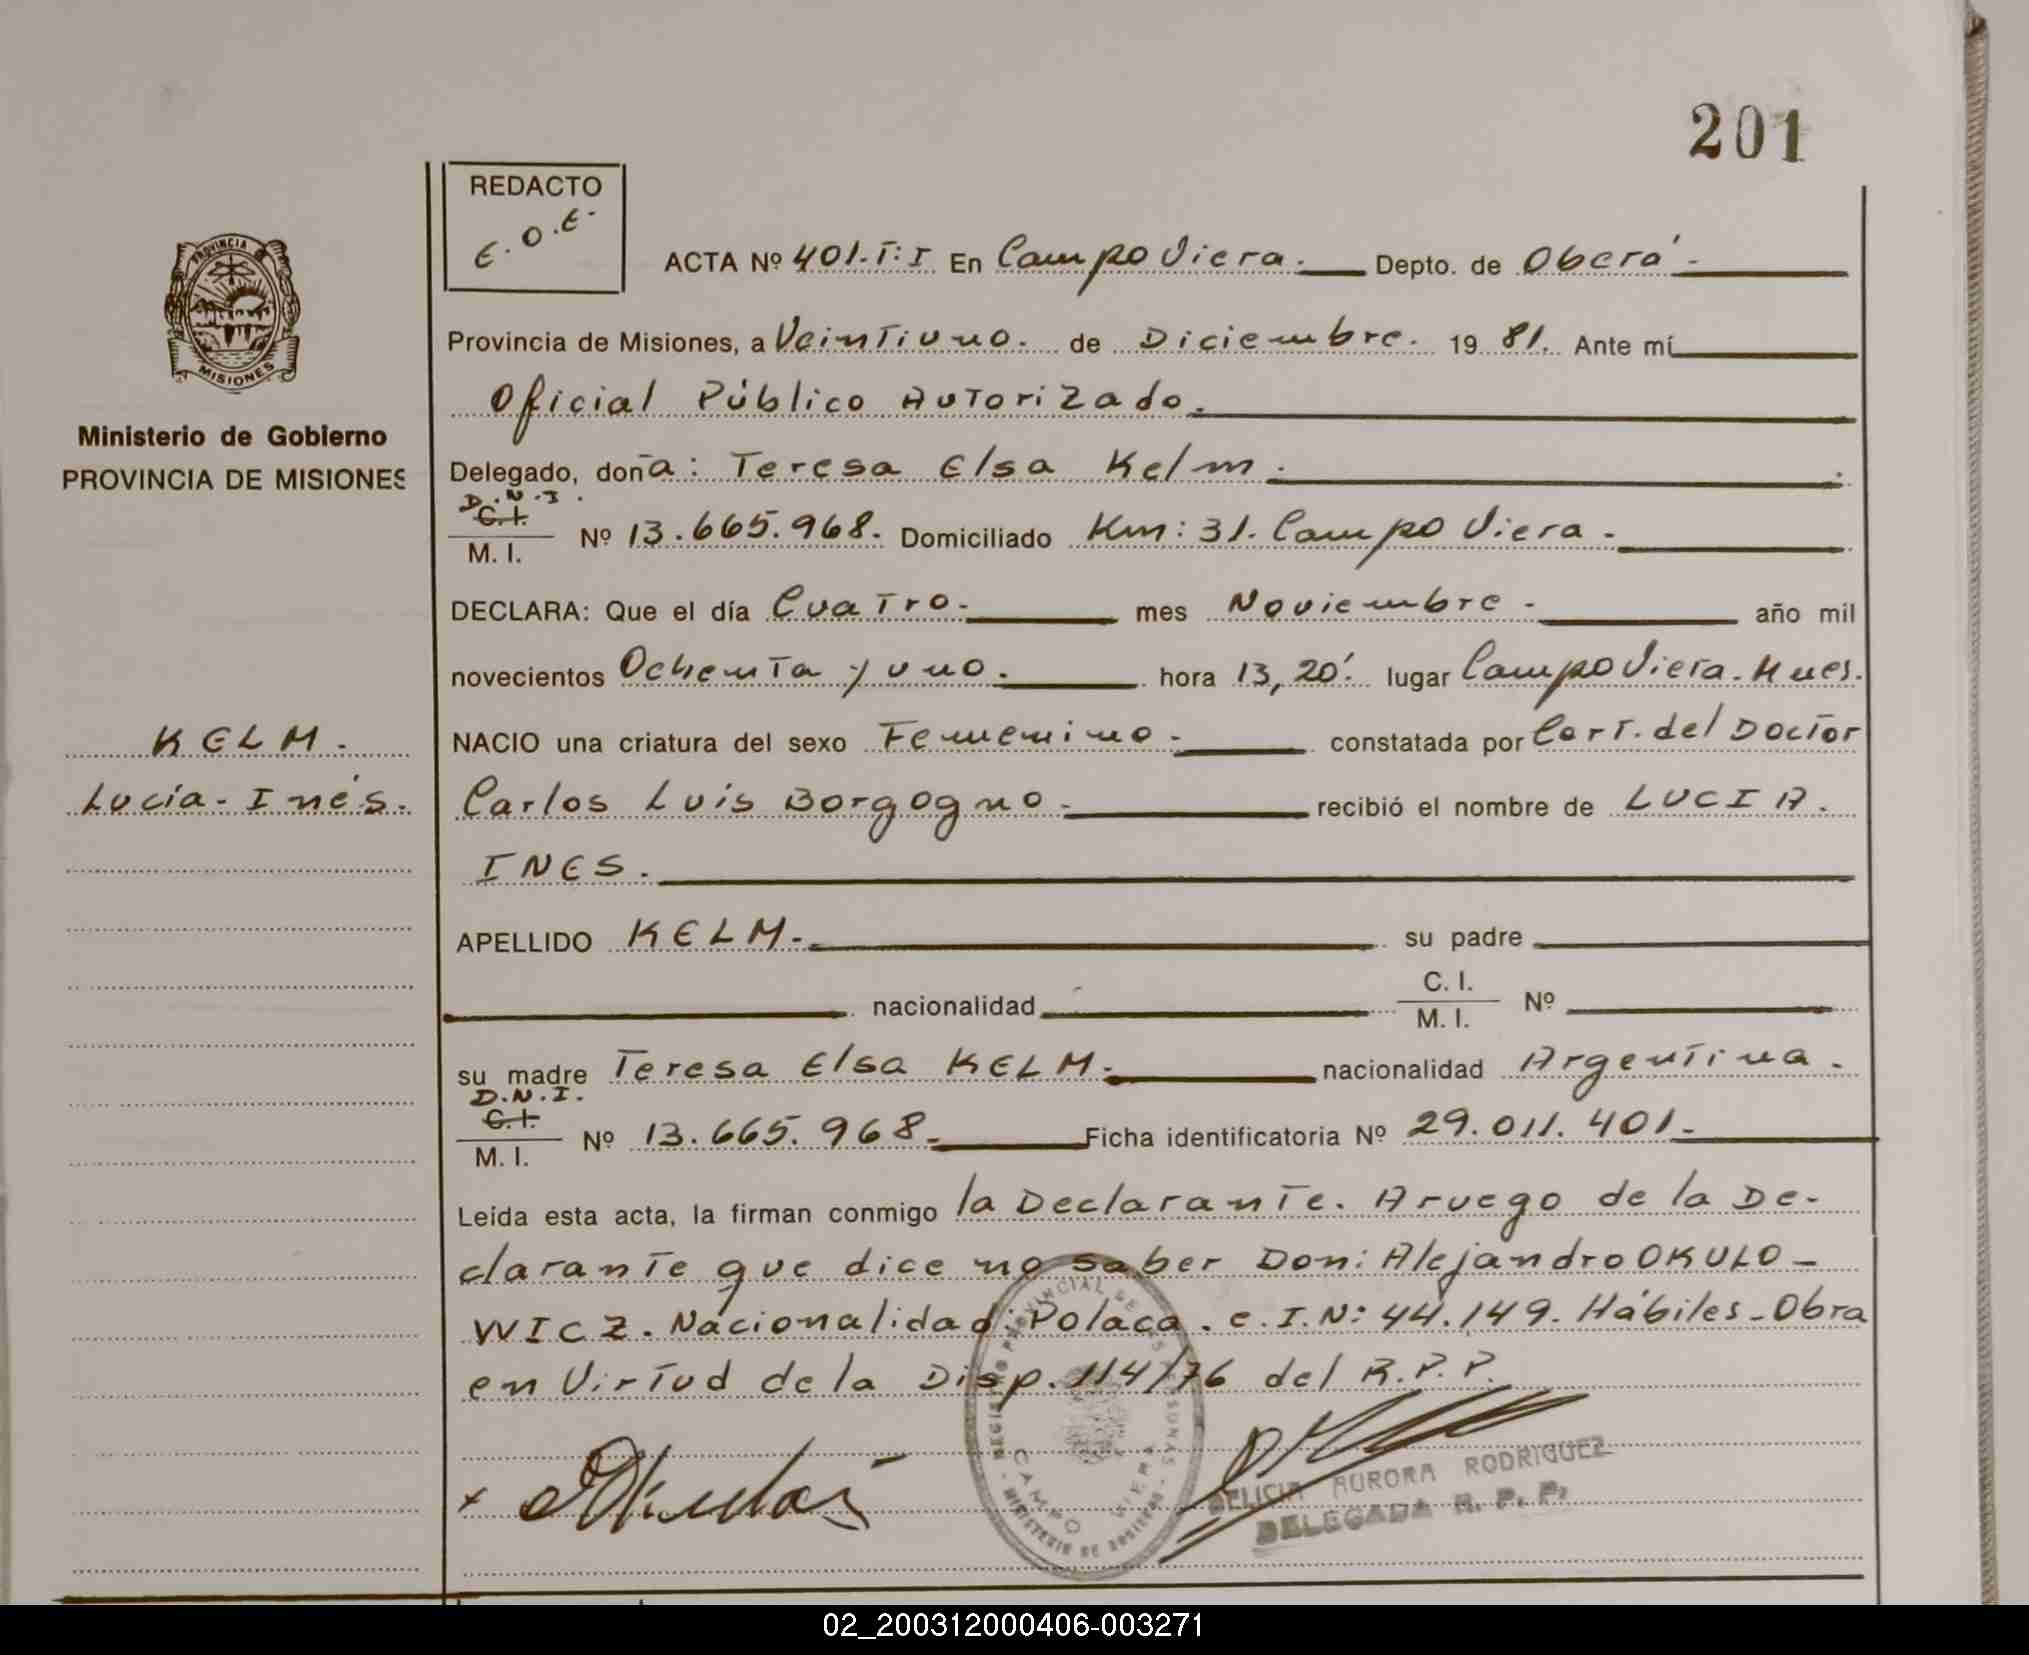 201
REDACTO
E.O.E.
PROVINCIA
MISIONES
Ministerio de Gobierno
PROVINCIA DE MISIONES
KELM.
Lucía-Inés.
ACTA Nº 401.T:I En Campo Viera. Depto. de Oberá-
Provincia de Misiones, a Veintiuno. de Diciembre. 1981. Ante mí
Oficial Público Autorizado.
Delegado, doña: Teresa Elsa Kelm.
D.N.I.
C.I.
M. I. Nº 13.665.968. Domiciliado Km: 31. Campo Viera.
DECLARA: Que el día Cuatro. mes Noviembre. año mil
novecientos Ochenta y uno. hora 13,20' lugar Campo Viera. Mnes.
NACIO una criatura del sexo Femenino. constatada por Cert. del Doctor
Carlos Luis Borgogno. recibió el nombre de LUCIA.
INES.
APELLIDO KELM. su padre
nacionalidad C. I.
M. I. Nº
su madre Teresa Elsa KELM. nacionalidad Argentina.
D.N.I.
C.I.
M. I. Nº 13.665.968. Ficha identificatoria Nº 29.011.401.
Leída esta acta, la firman conmigo la Declarante. A ruego de la De-
clarante que dice no saber Don: Alejandro OKULO-
WICZ. Nacionalidad: Polaca. C.I.N: 44.149. Hábiles-Obra
en Virtud de la Disp. 114/76 del R.P.P.
REGISTRO PROVINCIAL DE LAS PERSONAS
CAMPO VIERA
DELICIA AURORA RODRIGUEZ
DELEGADA R. P. P.
02_200312000406-003271